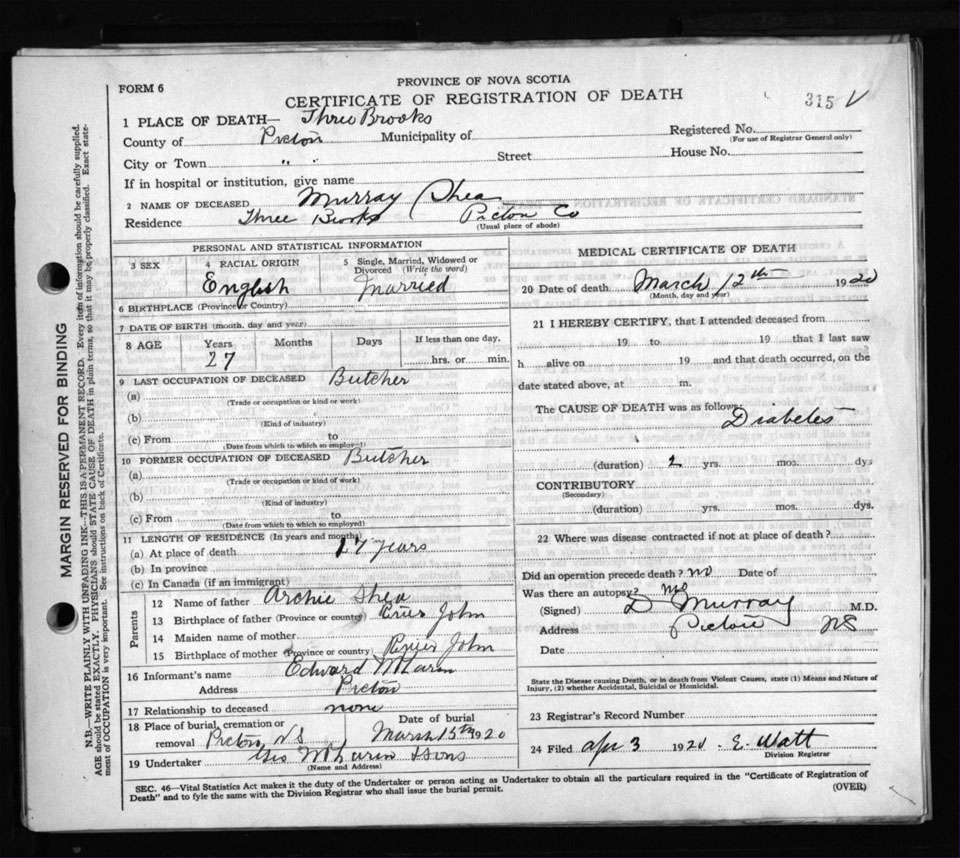 FORM 6
PROVINCE OF NOVA SCOTIA
CERTIFICATE OF REGISTRATION OF DEATH
315
1 PLACE OF DEATH— Three Brooks
County of Pictou Municipality of Registered No.
(For use of Registrar General only)
City or Town " " Street House No.
If in hospital or institution, give name
2 NAME OF DECEASED Murray Shea
Residence Three Brooks Pictou Co
(Usual place of abode)
PERSONAL AND STATISTICAL INFORMATION
3 SEX 4 RACIAL ORIGIN 5 Single, Married, Widowed or Divorced (Write the word)
English Married
6 BIRTHPLACE (Province or Country)
7 DATE OF BIRTH (month, day and year)
8 AGE Years Months Days If less than one day,
27 hrs. or min.
9 LAST OCCUPATION OF DECEASED Butcher
(a)
(Trade or occupation or kind or work)
(b)
(Kind of industry)
(c) From to
(Date from which to which so employed)
10 FORMER OCCUPATION OF DECEASED Butcher
(a)
(Trade or occupation or kind of work)
(b)
(Kind of industry)
(c) From to
(Date from which to which so employed)
11 LENGTH OF RESIDENCE (In years and months)
(a) At place of death 17 years
(b) In province
(c) In Canada (if an immigrant)
Parents
12 Name of father Archie Shea
13 Birthplace of father (Province or country) John
14 Maiden name of mother
15 Birthplace of mother (Province or country) River John
16 Informant's name Edward
Address Pictou
17 Relationship to deceased none
18 Place of burial, cremation or removal Pictou NS
Date of burial March 15th 1920
19 Undertaker Geo & Sons
(Name and Address)
MEDICAL CERTIFICATE OF DEATH
20 Date of death March 12th 1920
(Month, day and year)
21 I HEREBY CERTIFY, that I attended deceased from
19 to 19 that I last saw
h alive on 19 and that death occurred, on the
date stated above, at m.
The CAUSE OF DEATH was as follows:
Diabetes
(duration) 2 yrs. mos. dys
CONTRIBUTORY
(Secondary)
(duration) yrs. mos. dys.
22 Where was disease contracted if not at place of death?
Did an operation precede death? no Date of
Was there an autopsy? no
(Signed) D Murray M.D.
Address Pictou NS
Date
State the Disease causing Death, or in death from Violent Causes, state (1) Means and Nature of
Injury, (2) whether Accidental, Suicidal or Homicidal.
23 Registrar's Record Number
24 Filed Apr 3 1920 E. Watt
Division Registrar
SEC. 46—Vital Statistics Act makes it the duty of the Undertaker or person acting as Undertaker to obtain all the particulars required in the "Certificate of Registration of
Death" and to fyle the same with the Division Registrar who shall issue the burial permit.
(OVER)
MARGIN RESERVED FOR BINDING
N.B.—WRITE PLAINLY WITH UNFADING INK—THIS IS A PERMANENT RECORD. Every item of information should be carefully supplied.
AGE should be stated EXACTLY. PHYSICIANS should STATE CAUSE OF DEATH in plain terms, so that it may be properly classified. Exact state-
ment of OCCUPATION is very important. See instructions on back of Certificate.